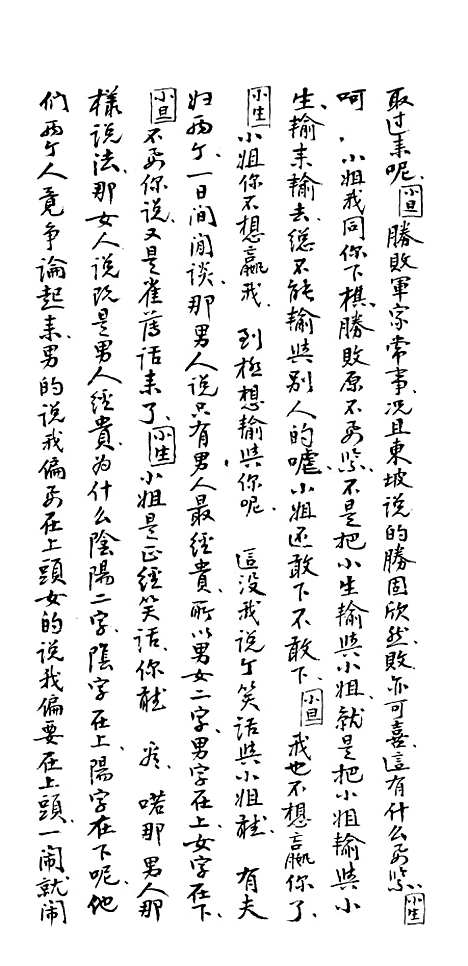 取过来呢、小旦勝敗軍家常事、况且東坡说的勝固欣然、敗亦可喜、這有什么要紧、小生
呵、小姐我同你下棋、勝敗原不要紧、不是把小生输與小姐、就是把小姐输與小
生、输来输去、總不能输與别人的嘘、小姐还敢下不敢下、小旦我也不想贏你了、
小生小姐你不想贏我、到極想输與你呢、這没我说个笑话與小姐聼、有夫
妇两个、一日间闲谈、那男人说只有男人最經貴、所以男女二字、男字在上、女字在下、
小旦不要你说、又是雀薄话来了、小生小姐是正經笑话、你聼、喏那男人那
樣说法、那女人说既是男人經貴、为什么陰陽二字、陰字在上、陽字在下呢、他
们两个人竟争論起来、男的说我偏要在上頭、女的说我偏要在上頭、一闹就闹